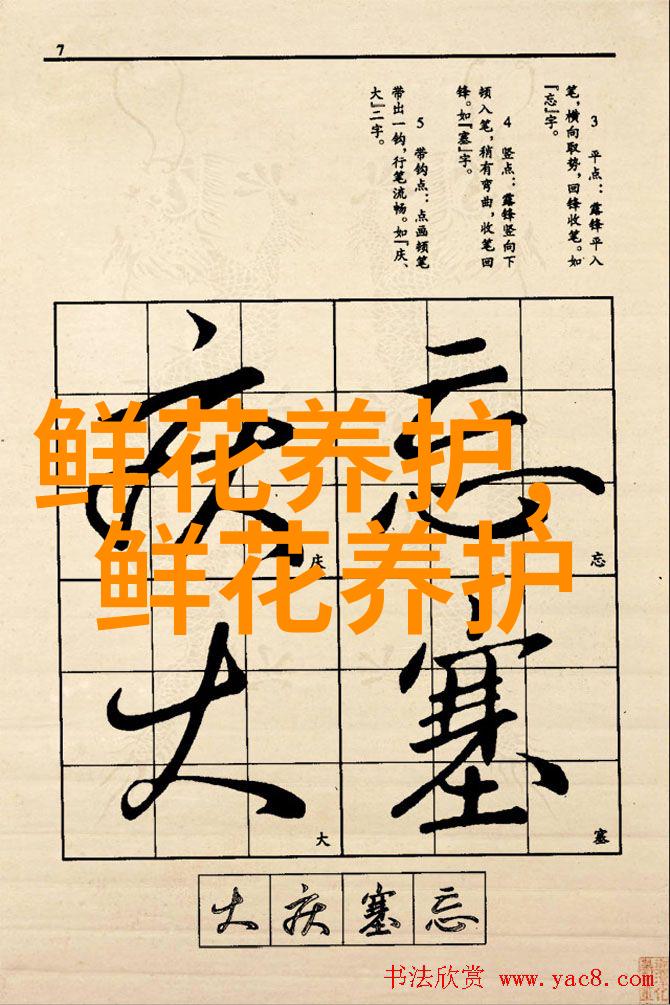 7
3 平点：露锋平入
笔，横向取势，回锋收笔。如
『忘』字。
4 竖点：露锋竖向下
顿入笔，稍有弯曲，收笔回
锋。如『塞』字。
5 带钩点：点画顿笔
带出一钩，行笔流畅。如『庆、
大』二字。
忘
塞
庆
大
鲜花养护，
鲜花养护
忘
庆
塞
大
大庆塞忘
书法欣赏 www.yac8.com